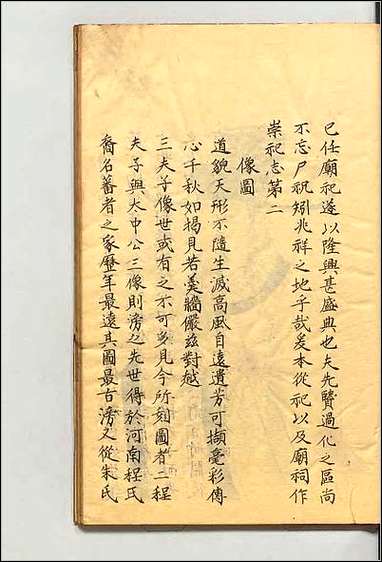 已任廟祀遂以隆興甚盛典也夫先賢過化之區尚
不忘尸祝矧兆祥之地乎哉爰本從祀以及廟祠作
崇祀志第二
像圖
道貌天形不隨生滅高風自遠遺芳可擷毫彩傳
心千秋如揭見若羹牆儼茲對越
三夫子像世或有之不可多見今所刻圖者二程
夫子與太中公三像則滂之先世得於河南程氏
裔名蕃者之家歷年最遠其圖最古滂又從朱氏